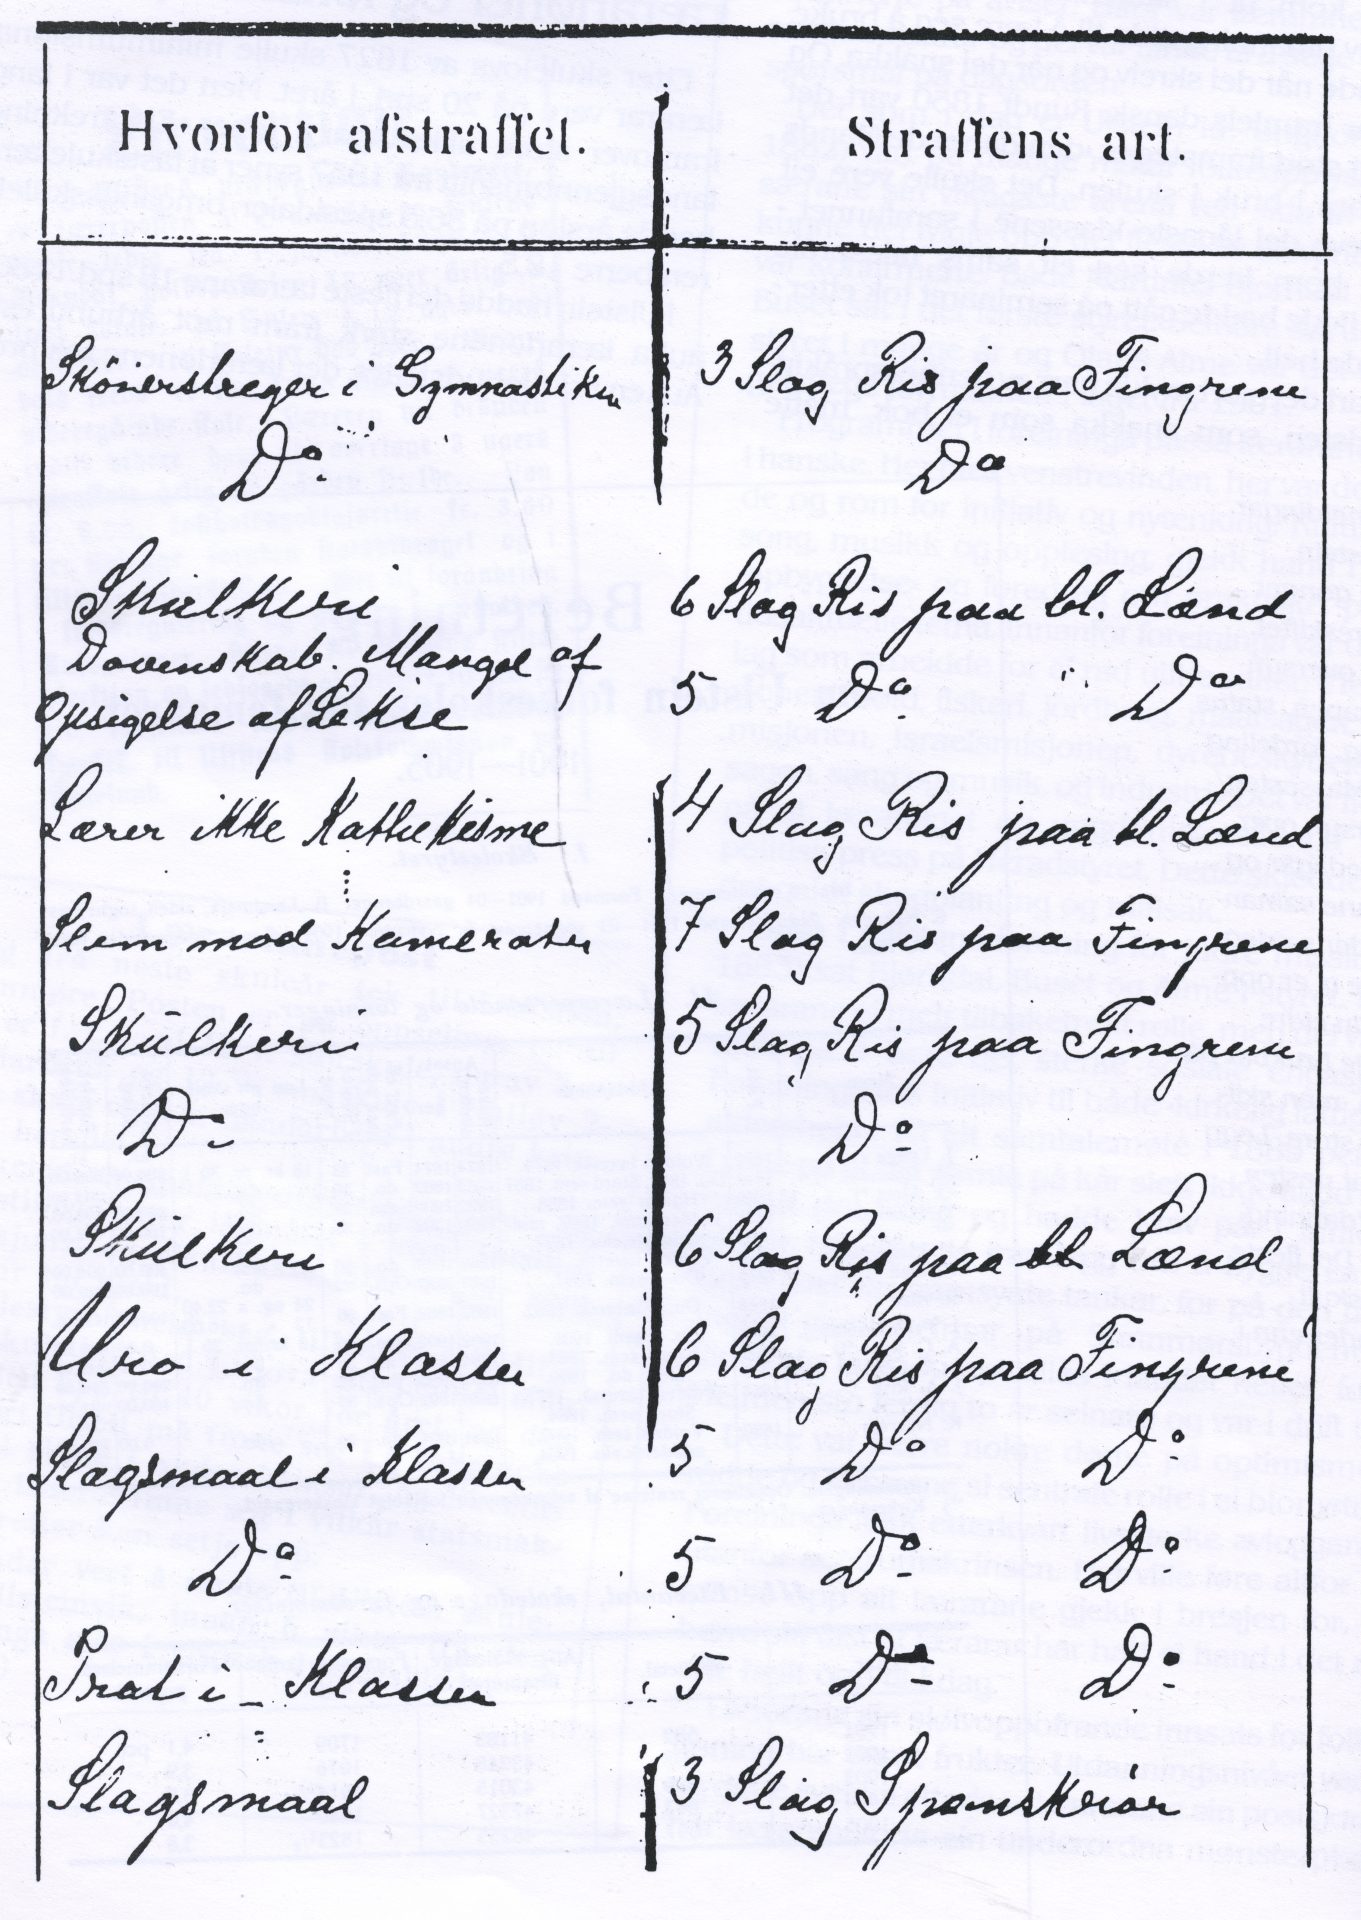 Hvorfor afstraffet. Straffens art.
Skøierstreger i Gymnastiken 3 Slag Ris paa Fingrene
Do Do
Skulkeri 6 Slag Ris paa bl. Lænd
Dovenskab. Mangel af 5 Do Do
Opsigelse af Lekse
Lærer ikke Kathekisme 4 Slag Ris paa bl. Lænd
Slem mod Kameraten 7 Slag Ris paa Fingrene
Skulkeri 5 Slag Ris paa Fingrene
Do Do
Skulkeri 6 Slag Ris paa bl Lænd
Uro i Klassen 6 Slag Ris paa Fingrene
Slagsmaal i Klassen 5 Do Do
Do 5 Do Do
Prat i Klassen 5 Do Do
Slagsmaal 3 Slag Spanskrør